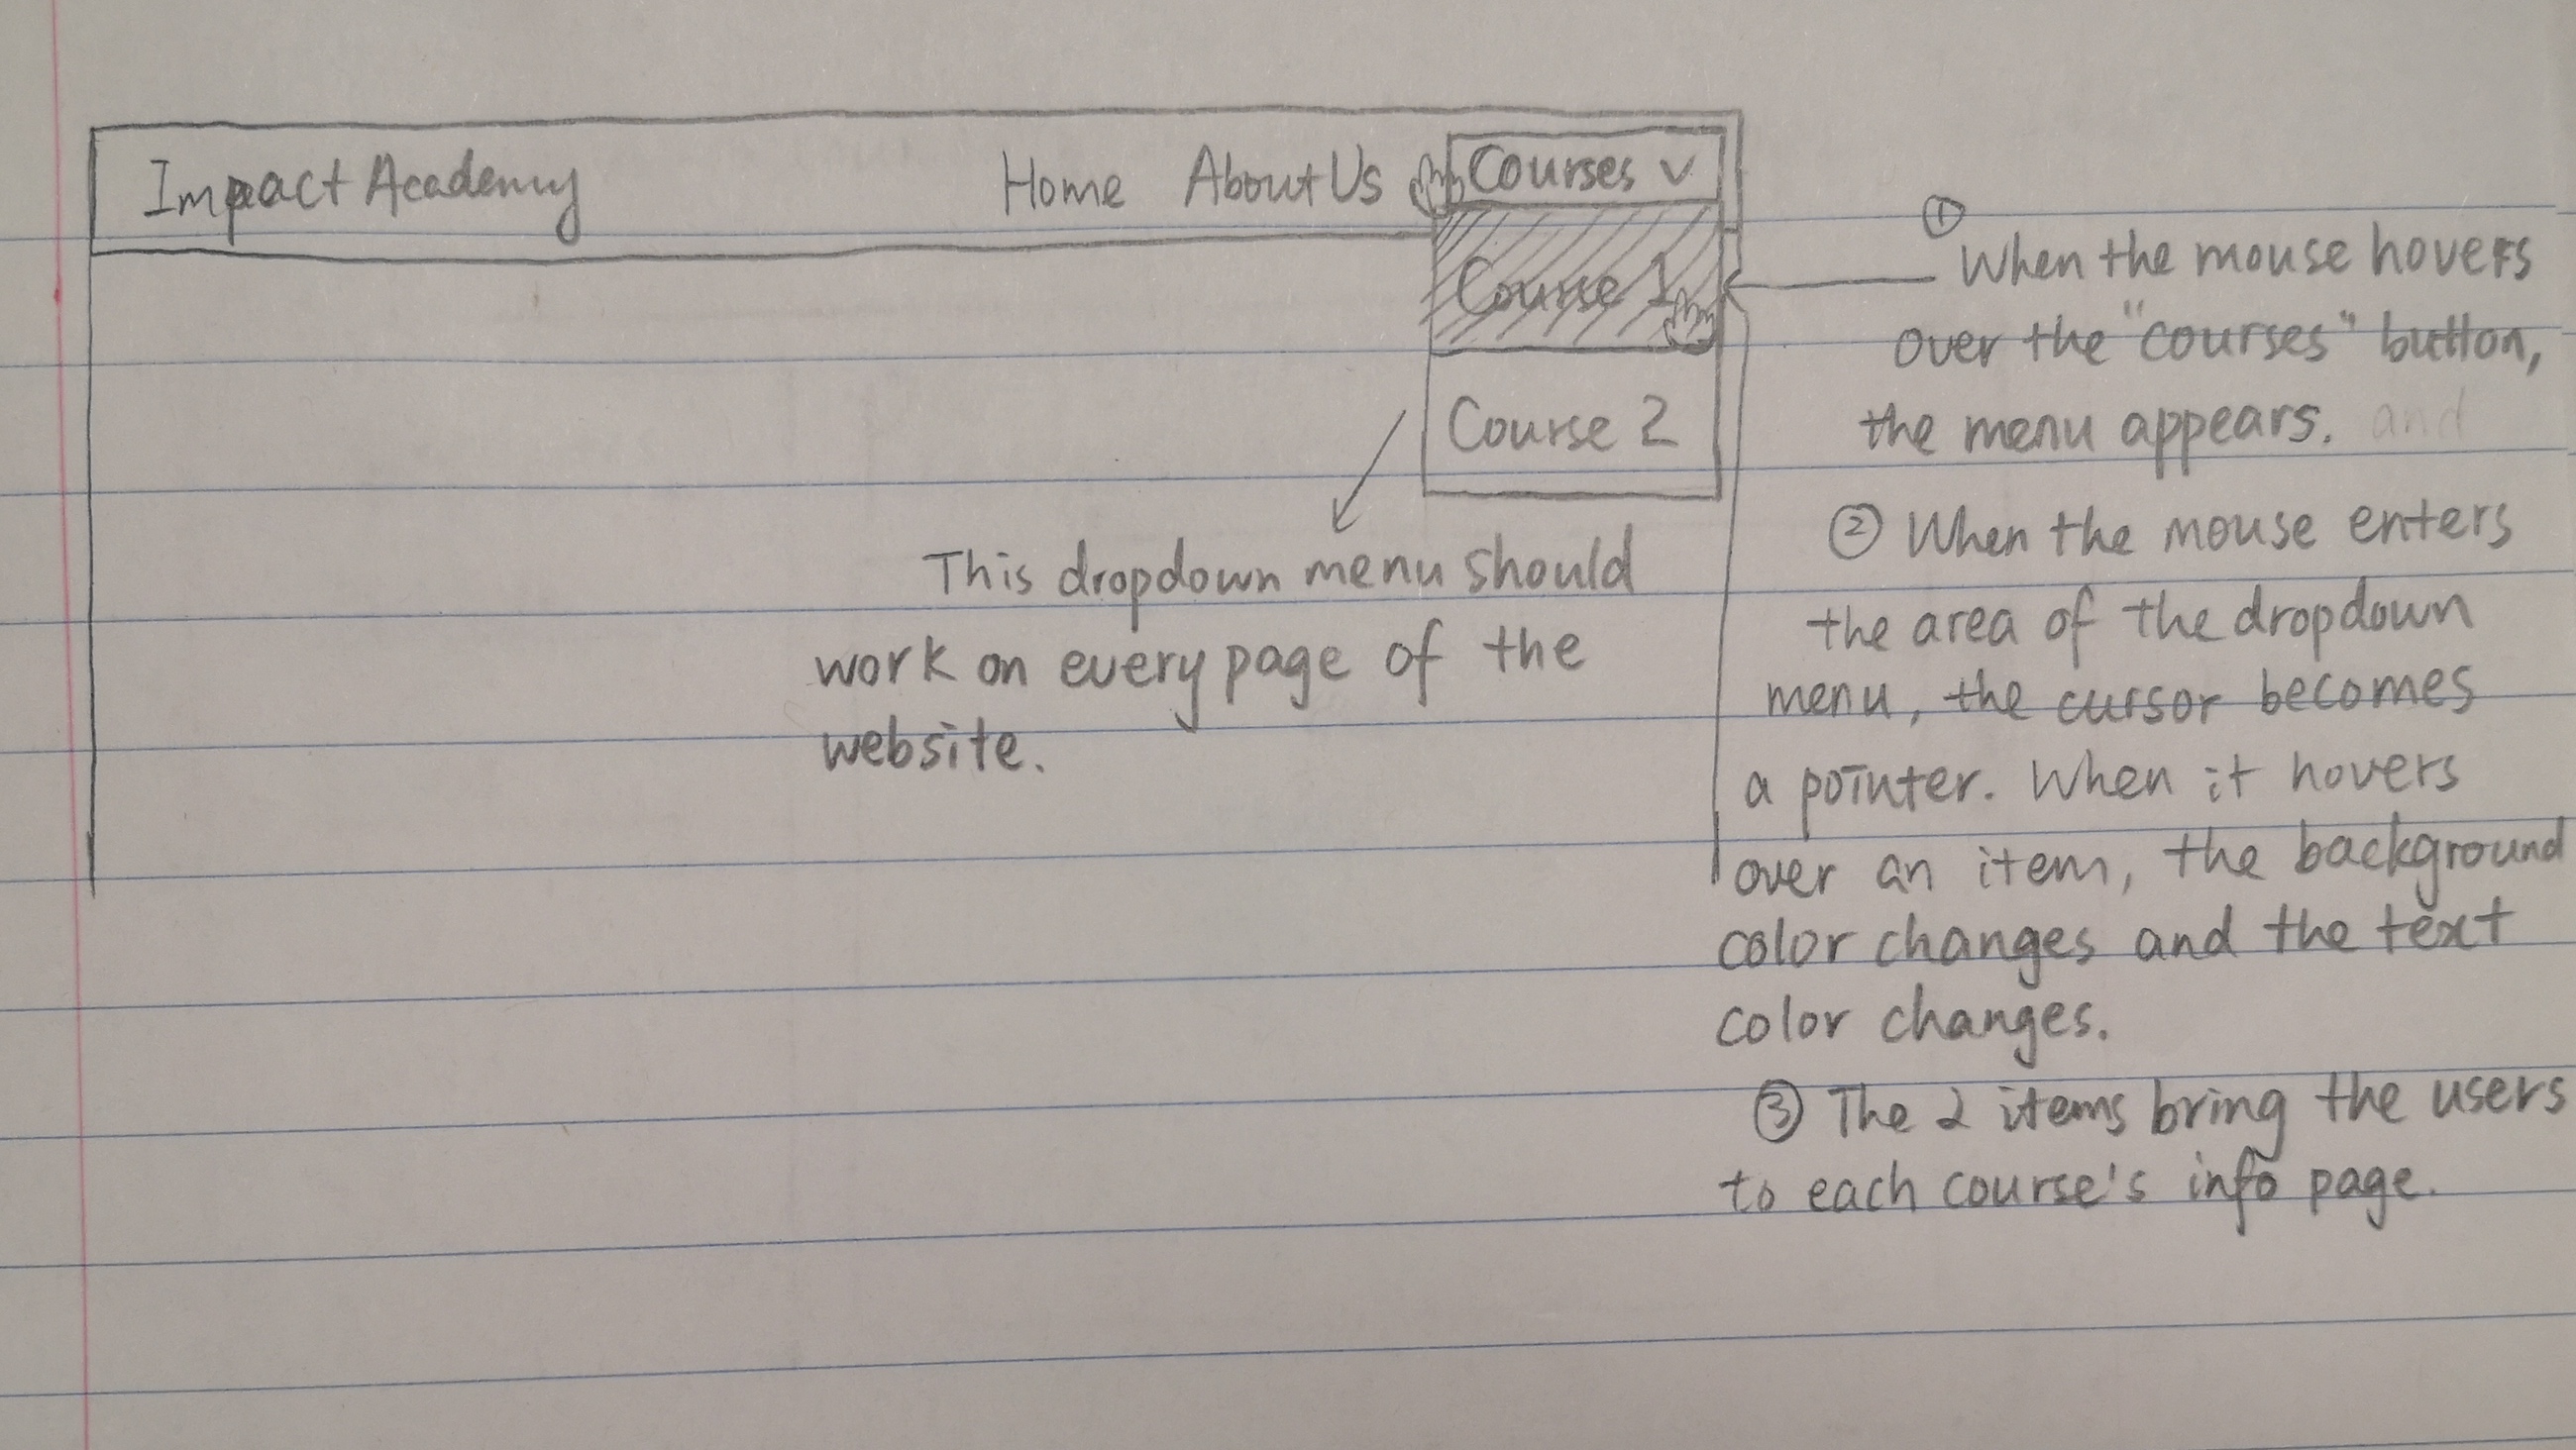 Impact Academy Home About Us Courses v
Course 1
Course 2
This dropdown menu should
work on every page of the
website.
①
When the mouse hovers
over the "courses" button,
the menu appears. and
② When the mouse enters
the area of the dropdown
menu, the cursor becomes
a pointer. When it hovers
over an item, the background
color changes and the text
color changes.
③ The 2 items bring the users
to each course's info page.